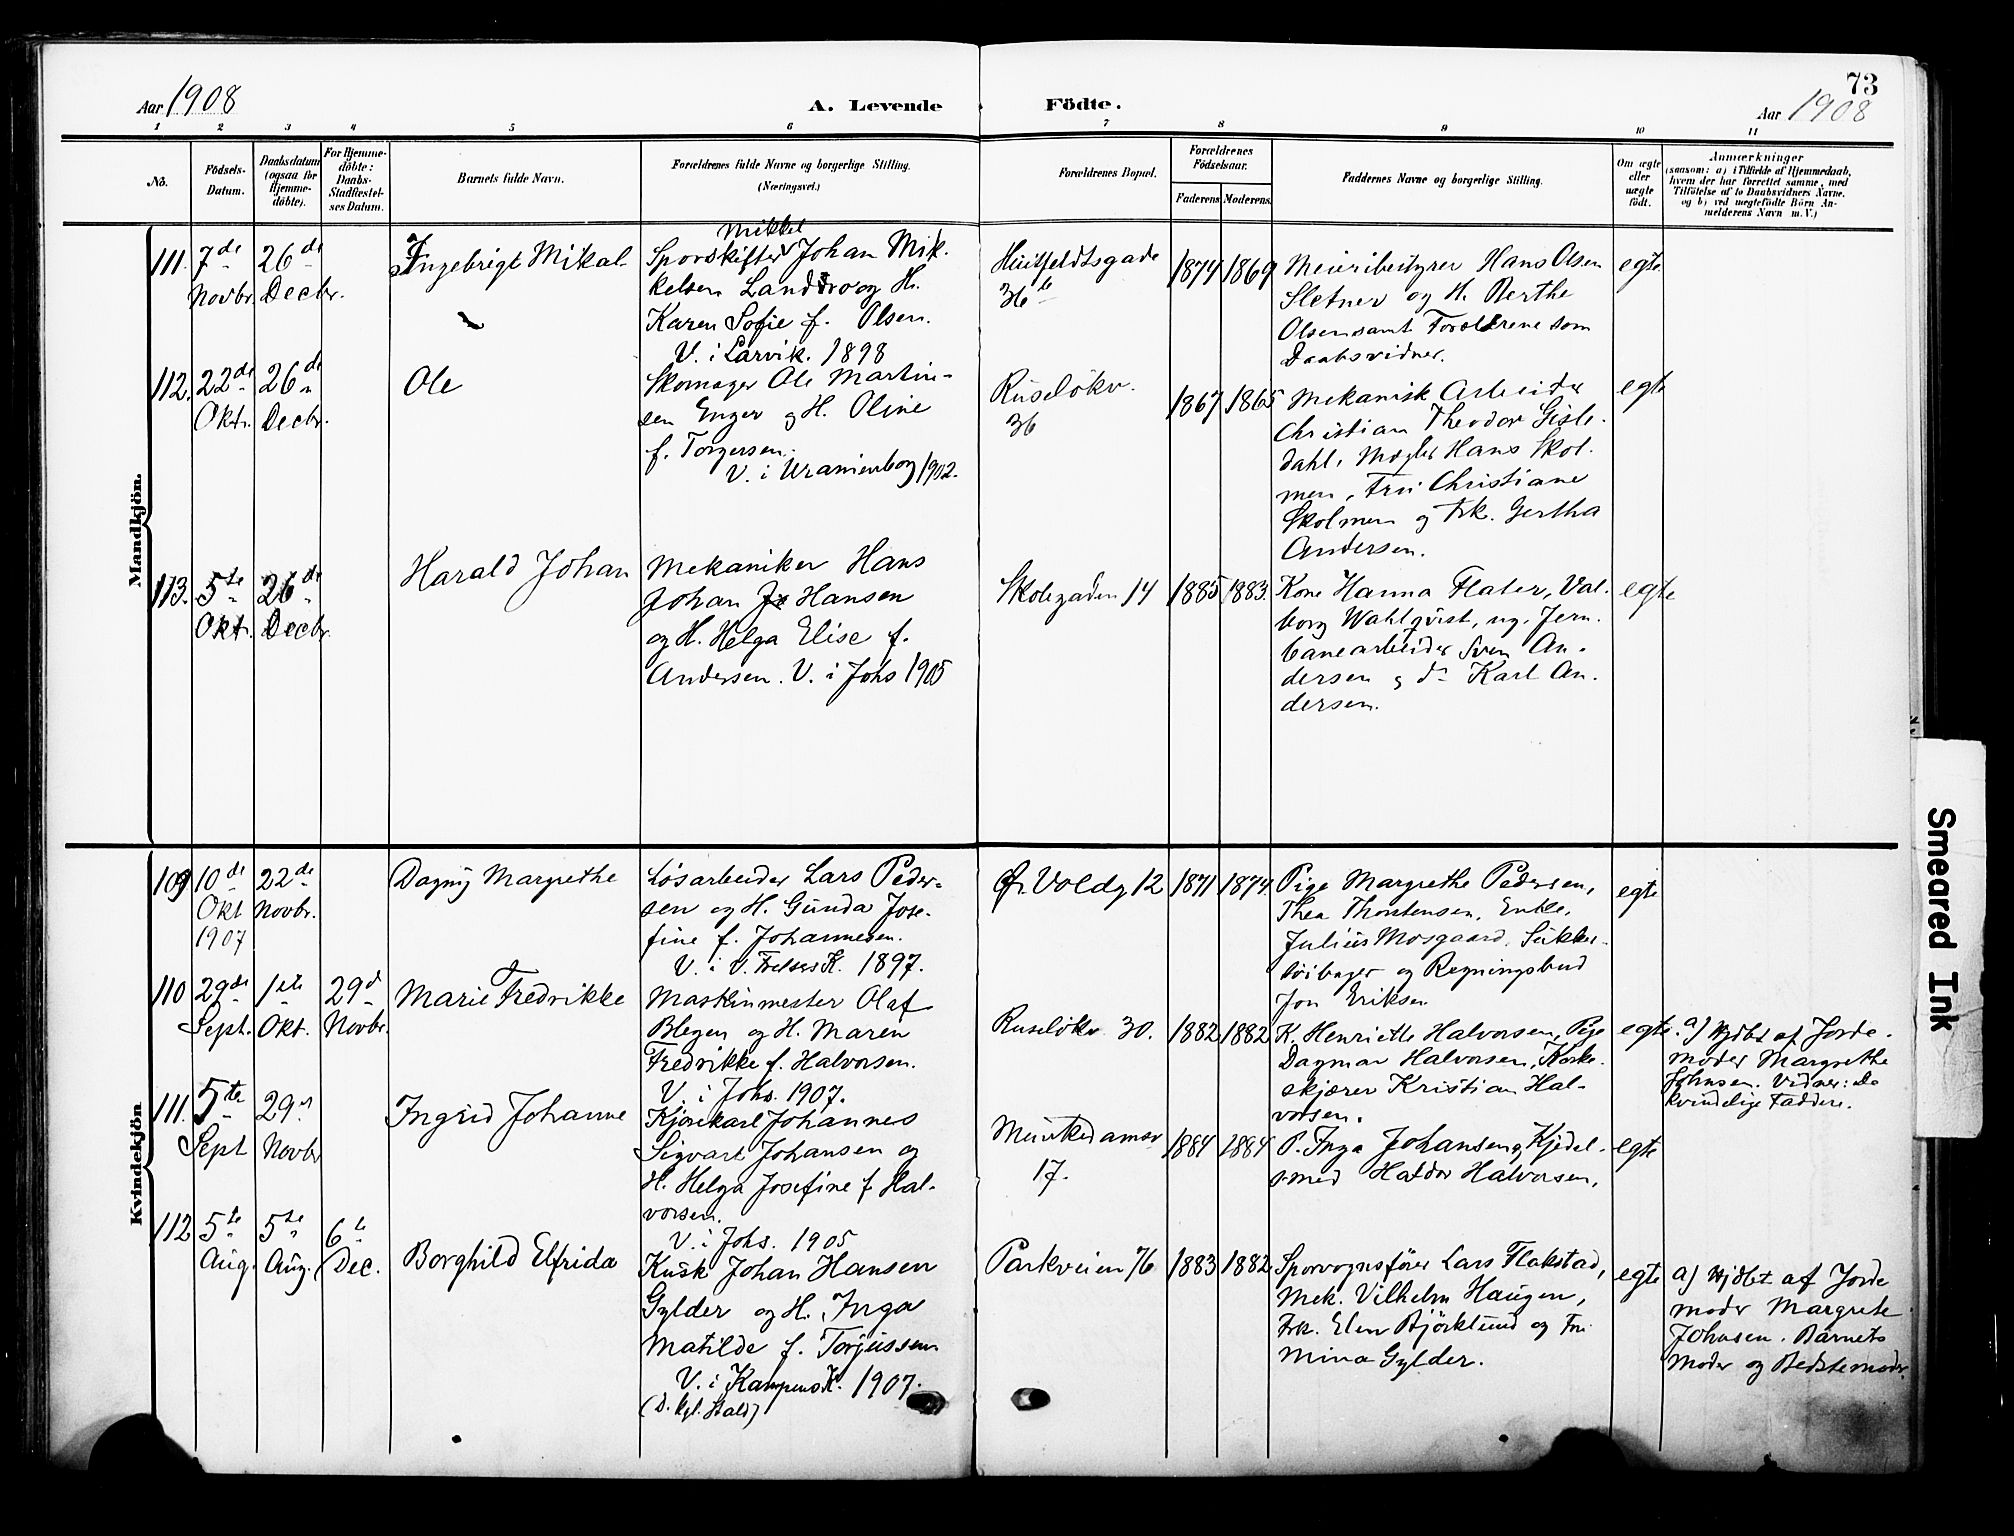 73
Aar 1908
A. Levende Födte.
Aar 1908
1 2 3 4 5 6 7 8 9 10 11
No.
Födsels-Datum.
Daabsdatum (ogsaa for Hjemme-döbte).
For Hjemme-döbte: Daabs-Stadfæstel-ses Datum.
Barnets fulde Navn.
Forældrenes fulde Navne og borgerlige Stilling.
(Næringsvei.)
Forældrenes Bopæl.
Forældrenes Födselsaar.
Faderens Moderens
Faddernes Navne og borgerlige Stilling.
Om ægte eller uægte födt.
Anmærkninger
(saasom: a) i Tilfælde af Hjemmedaab,
hvem der har forrettet samme, med
Tilföielse af to Daabsvidners Navne,
og b) ved uægtefödte Börn An-
melderens Navn m. V.)
Mandkjön.
111. 7de Novbr. 26de Decbr.
Ingebrigt Mikal
Mikkel
Sporskifter Johan Mik-
kelsen Landsro og H.
Karen Sofie f. Olsen.
V. i Larvik. 1898
Huitfeldtsgade
36b
1874 1869
Meieribestyrer Hans Olsen
Sletner og H. Berthe
Olsen samt Forældrene som
Daabsvidner.
egte
112. 22de Okt. 26de Decbr.
Ole
Skomager Ole Martin-
sen Enger og H. Oline
f. Torgersen.
V. i Uranienborg 1902.
Ruseløkv.
36
1867 1865
Mekanisk Arbeider
Christian Theodor Gisle-
dahl, Mægler Hans Skol-
men, Fru Christiane
Skolmen og Frk. Gertha
Andersen.
egte
113. 5te Okt. 26de Decbr.
Harald Johan
Mekaniker Hans
Johan Hansen
og H. Helga Elise f.
Andersen. V. i Johs 1905
Skolegaden 14
1885 1883.
Kone Hanna Flater, Val-
borg Wahlqvist, ug. Jern-
banearbeider Søren An-
dersen og do Karl An-
dersen.
egte
Kvindekjön
109 10de Okt 1907 22de Novbr.
Dagny Margrethe
Løsarbeider Lars Peder-
sen og H. Gunda Jose-
fine f. Johannesen.
V. i V. Frelsers K. 1897.
Ø. Voldg 12
1871 1874.
Pige Margrethe Pedersen,
Thea Thorstensen, Enke,
Julius Mosgaard, Sukker-
tøibager og Regningsbud
Jon Eriksen
egte
110 29de Sept. 1ste Okt. 29d Novbr.
Marie Fredrikke
Maskinmester Olaf
Blegen og H. Maren
Fredrikke f. Halvorsen.
V. i Johs. 1907.
Ruseløkv. 30.
1882 1882
K. Henriette Halvorsen, Pige
Dagmar Halvorsen, Korke-
skjærer Kristian Hal-
vorsen.
egte.
a) Hjdbt af Jorde-
moder Margrethe
Johnsen. Vidner: De
kvindelige Faddere.
111. 5te Sept 29d Novbr
Ingrid Johanne
Kjørekarl Johannes
Sigvart Johansen og
H. Helga Josefine f. Hal-
vorsen.
V. i Johs. 1905
Munkedamsv
17.
1884 1884
P. Inga Johansen og Kjedel-
smed Haldor Halvorsen,
egte
112 5te Aug. 5te Aug. 6te Dec.
Borghild Elfrida
Kusk Johan Hansen
Gylder og H. Inga
Matilde f. Torjussen
V. i Kampens K. 1907.
(D. kgl. Stald)
Parkveien 76
1883 1882
Sporvognsfører Lars Flakstad,
Mek. Vilhelm Haugen,
Frk. Elen Bjørklund og Fru
Mina Gylder.
egte
a) Hjdbt af Jorde
moder Margrete
Johnsen. Barnets
Moder og Bedstemoder.
Smeared Ink